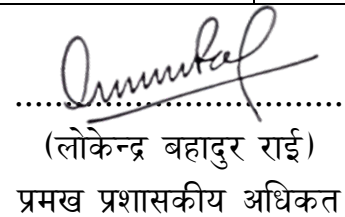 (लोकेन्द्र बहादुर राई)
प्रमख प्रशासकीय अधिकत